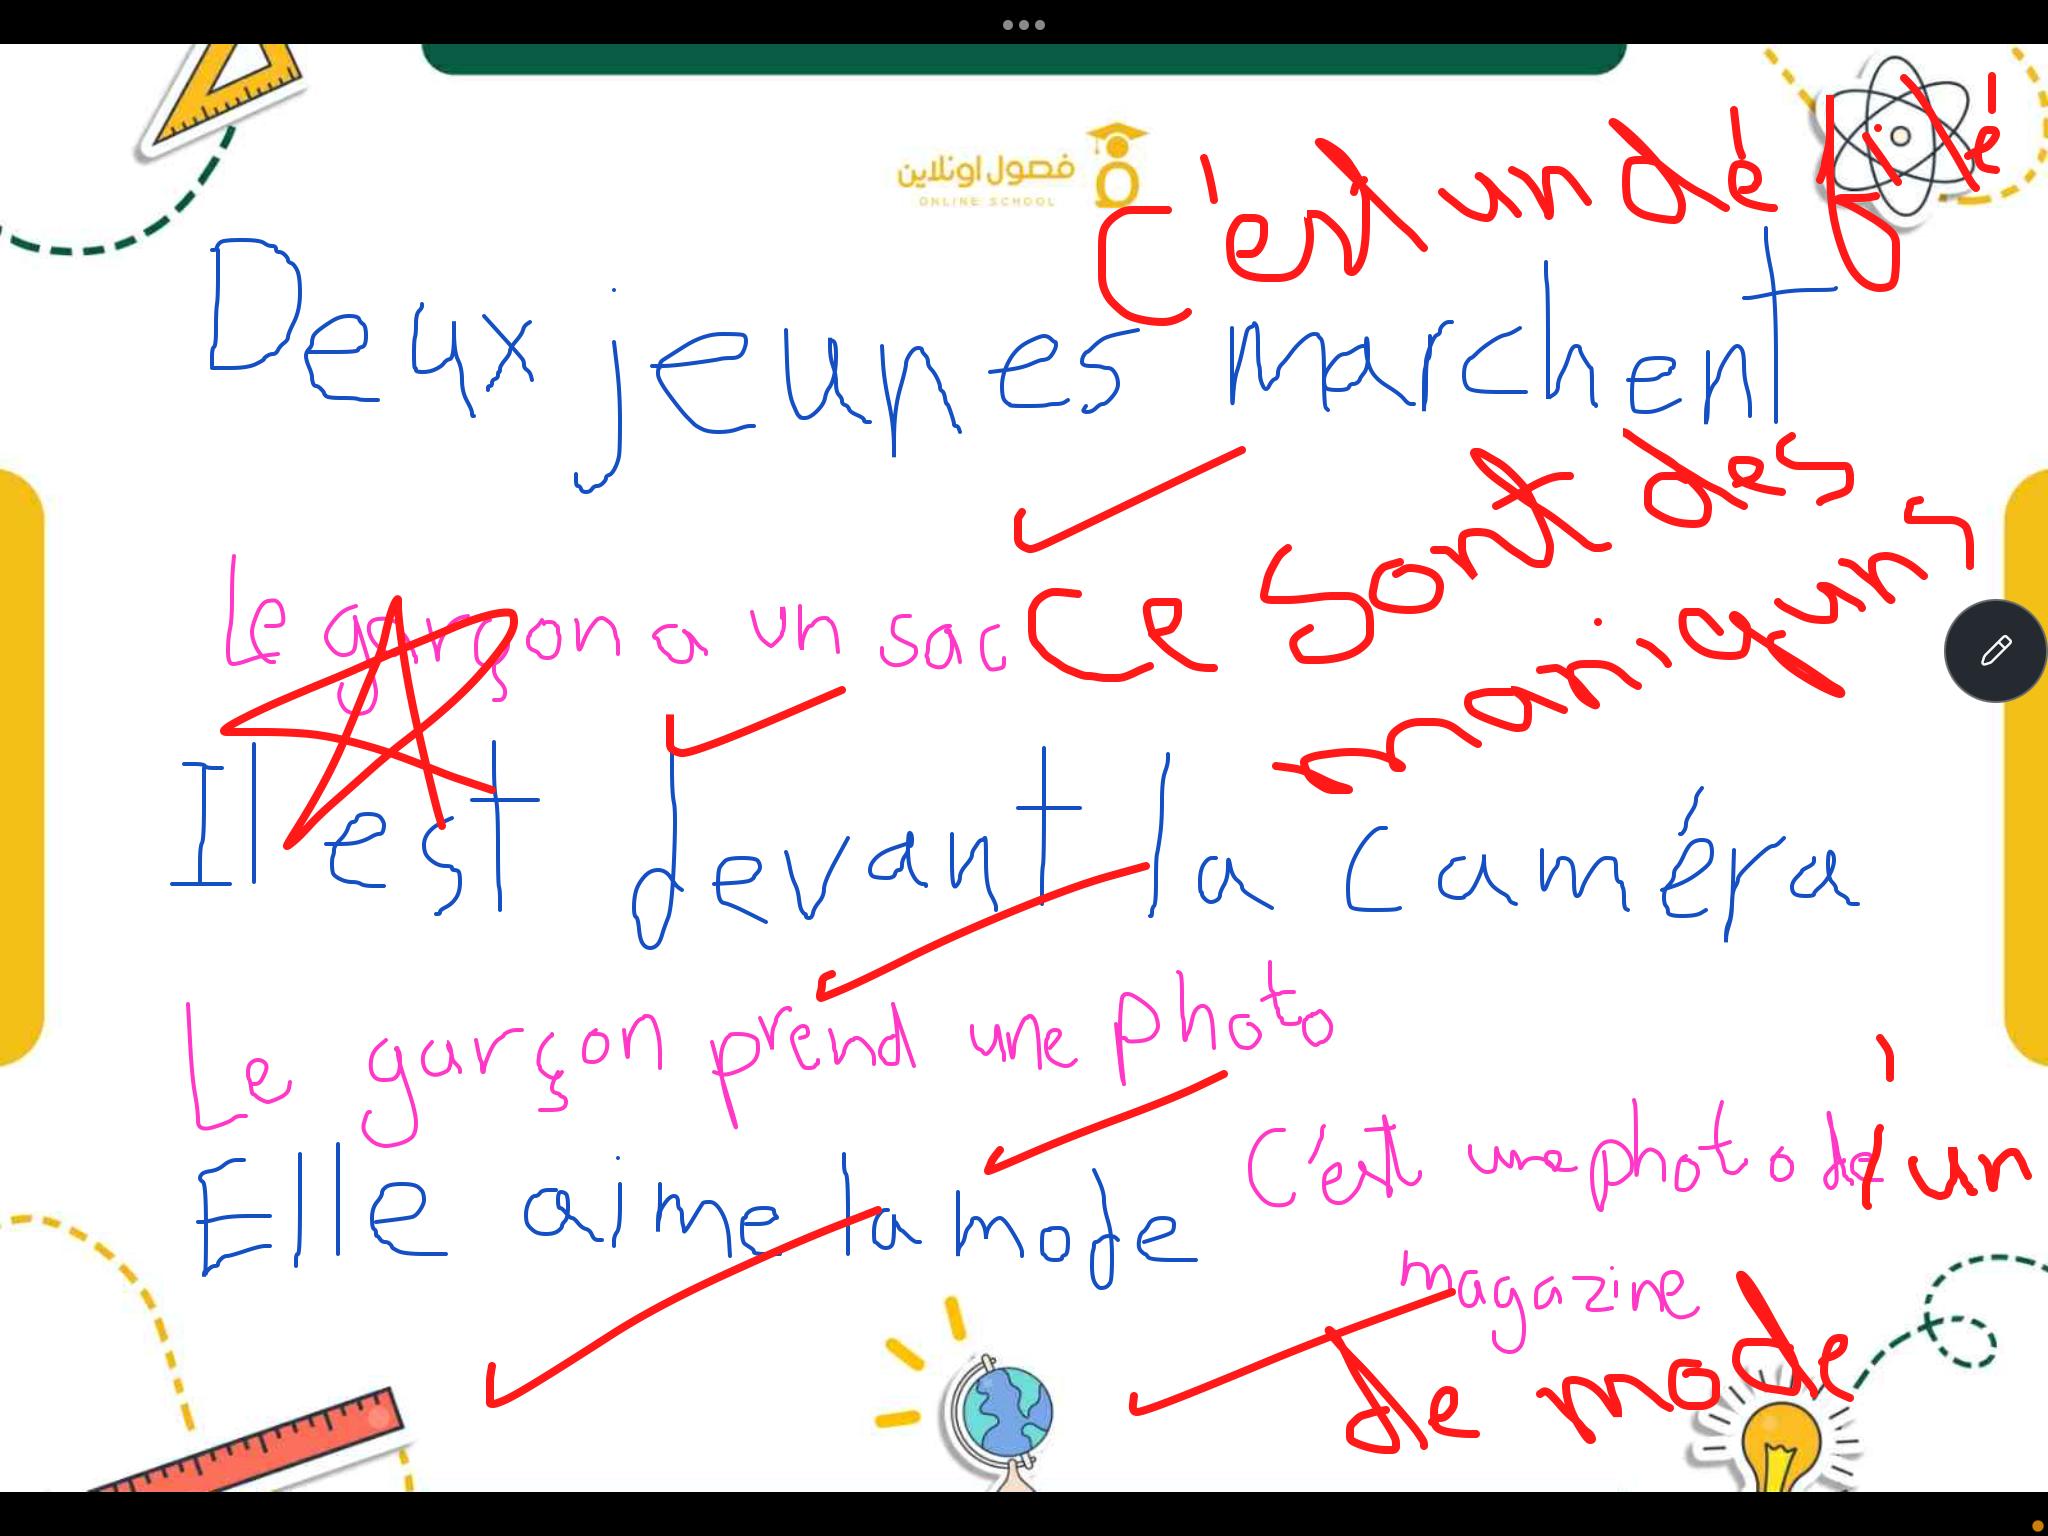 فصول اونلاين
ONLINE SCHOOL
C'est un défilé
Deux jeunes marchent
Le garçon a un sac
Ce sont des
maniquns
Il est devant la caméra
Le garçon prend une photo
Elle aime la mode
C'est une photo de d'un
magazine
de mode